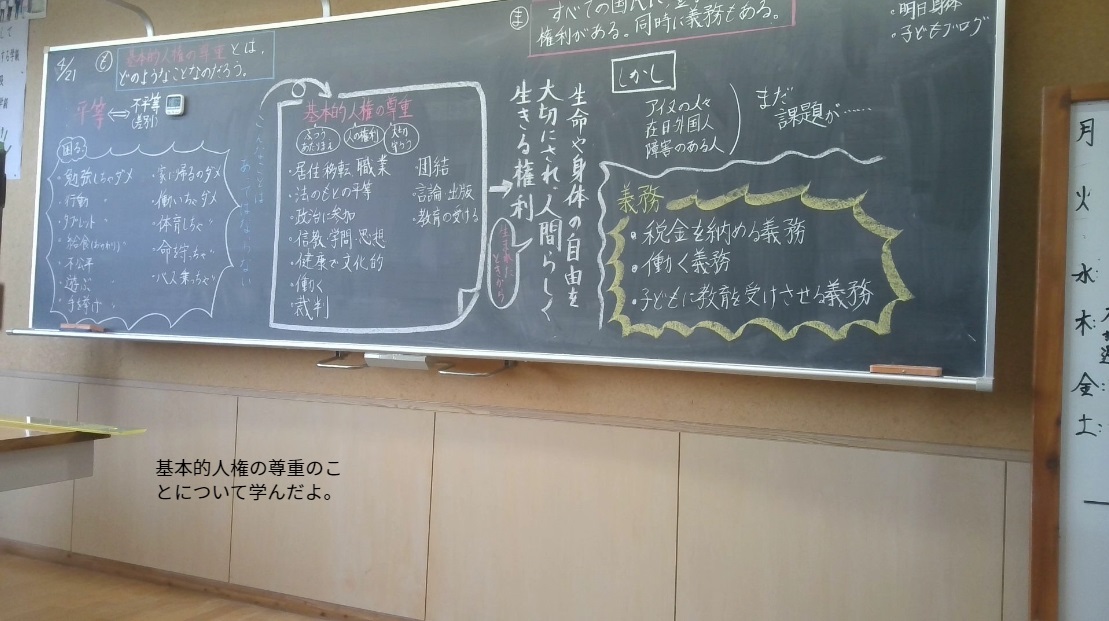 4/21
も
基本的人権の尊重とは、
どのようなことなのだろう。
平等⇔不平等
(差別)
困る
・勉強しちゃダメ
・行動 〃
・タブレット 〃
・給食
・不公平
・遊ぶ 〃
・手を挙げ 〃
・家に帰るのダメ
・働いちゃダメ
・体育しちゃ〃
・バス乗っちゃ〃
こんなことは
あってはならない
基本的人権の尊重
ふつう
あたりまえ
人の権利
大切
・居住 移転 職業
・法のもとの平等
・政治に参加
・信教 学問 思想
・健康で文化的
・働く
・裁判
・団結
・言論 出版
・教育の受ける
→
生命や身体の自由を
大切にされ、人間らしく
生きる権利
生まれた
ときから
ま
すべての国民に、
権利がある。同時に義務もある。
しかし
アイヌの人々
在日外国人
障害のある人
まだ
課題が……
義務
・税金を納める義務
・働く義務
・子どもに教育を受けさせる義務
・明日身体
・子どもブログ
月
火
水
木
金
土
基本的人権の尊重のこ
とについて学んだよ。